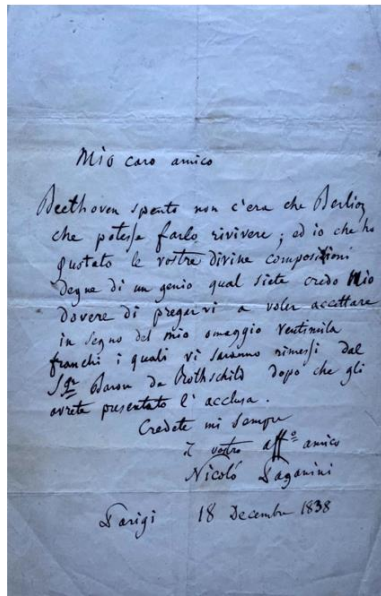 Mio caro amico
Beethoven spento non c'era che Berlioz
che potesse farlo rivivere; ed io che ho
gustato le vostre divine composizioni
Degne di un genio qual siete credo Mio
Dovere di pregarvi a voler accettare
in segno del mio omaggio ventimila
franchi i quali vi saranno rimessi dal
Sgr Baron de Rothschild dopo che gli
avrete presentato l'acclusa.
Credete mi sempre
Il vostro affo amico
Nicolò Paganini
Parigi 18 Decembre 1838